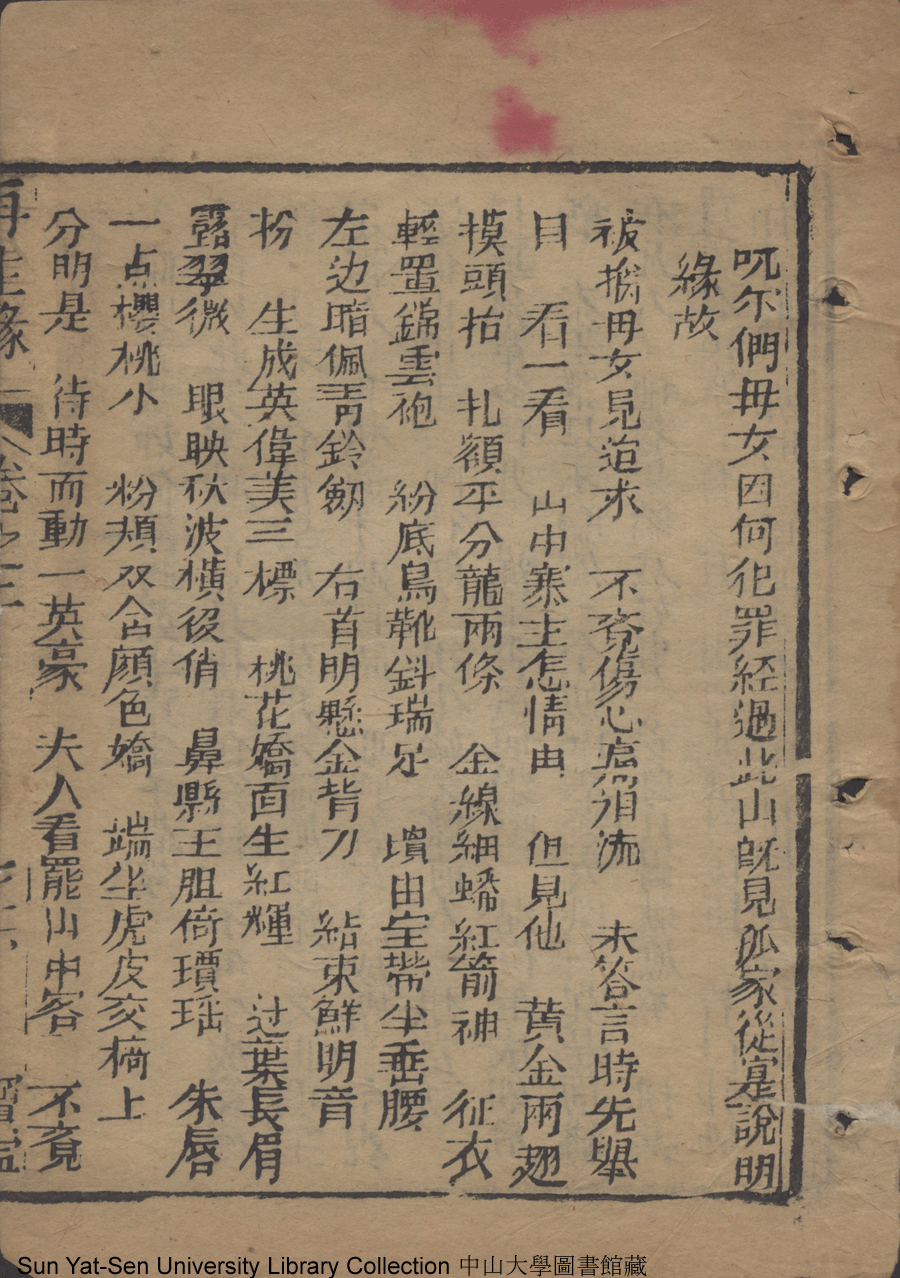 咒尔們毋女因何犯罪經過此山既見孤家從寔說明
緣故
被擄毋女見追求 不覔傷心㾗淚流 未答言時先舉
目 看一看 山中寨主怎情由 但見他 黄金兩翅
摸頭抬 扎額平分龍兩條 金線細蟠紅箭神 征衣
輕置錦雲袍 紛底烏靴斜瑞足 墳由宝帶半垂腰
左边暗佩青鈴劔 右首明懸金背刀 結束鮮明音
扮 生成英偉美三標 桃花嬌面生紅輝 过葉長眉
翠微 眼映秋波橫後俏 鼻縣王胆倚瓊瑶 朱唇
一点櫻桃小 粉頬双含顔色嬌 端坐虎皮交椅上
分明是 待時而動一英豪 夫人看罷山中客 不覔
再生緣 卷之二
Sun Yat-Sen University Library Collection 中山大學圖書館藏